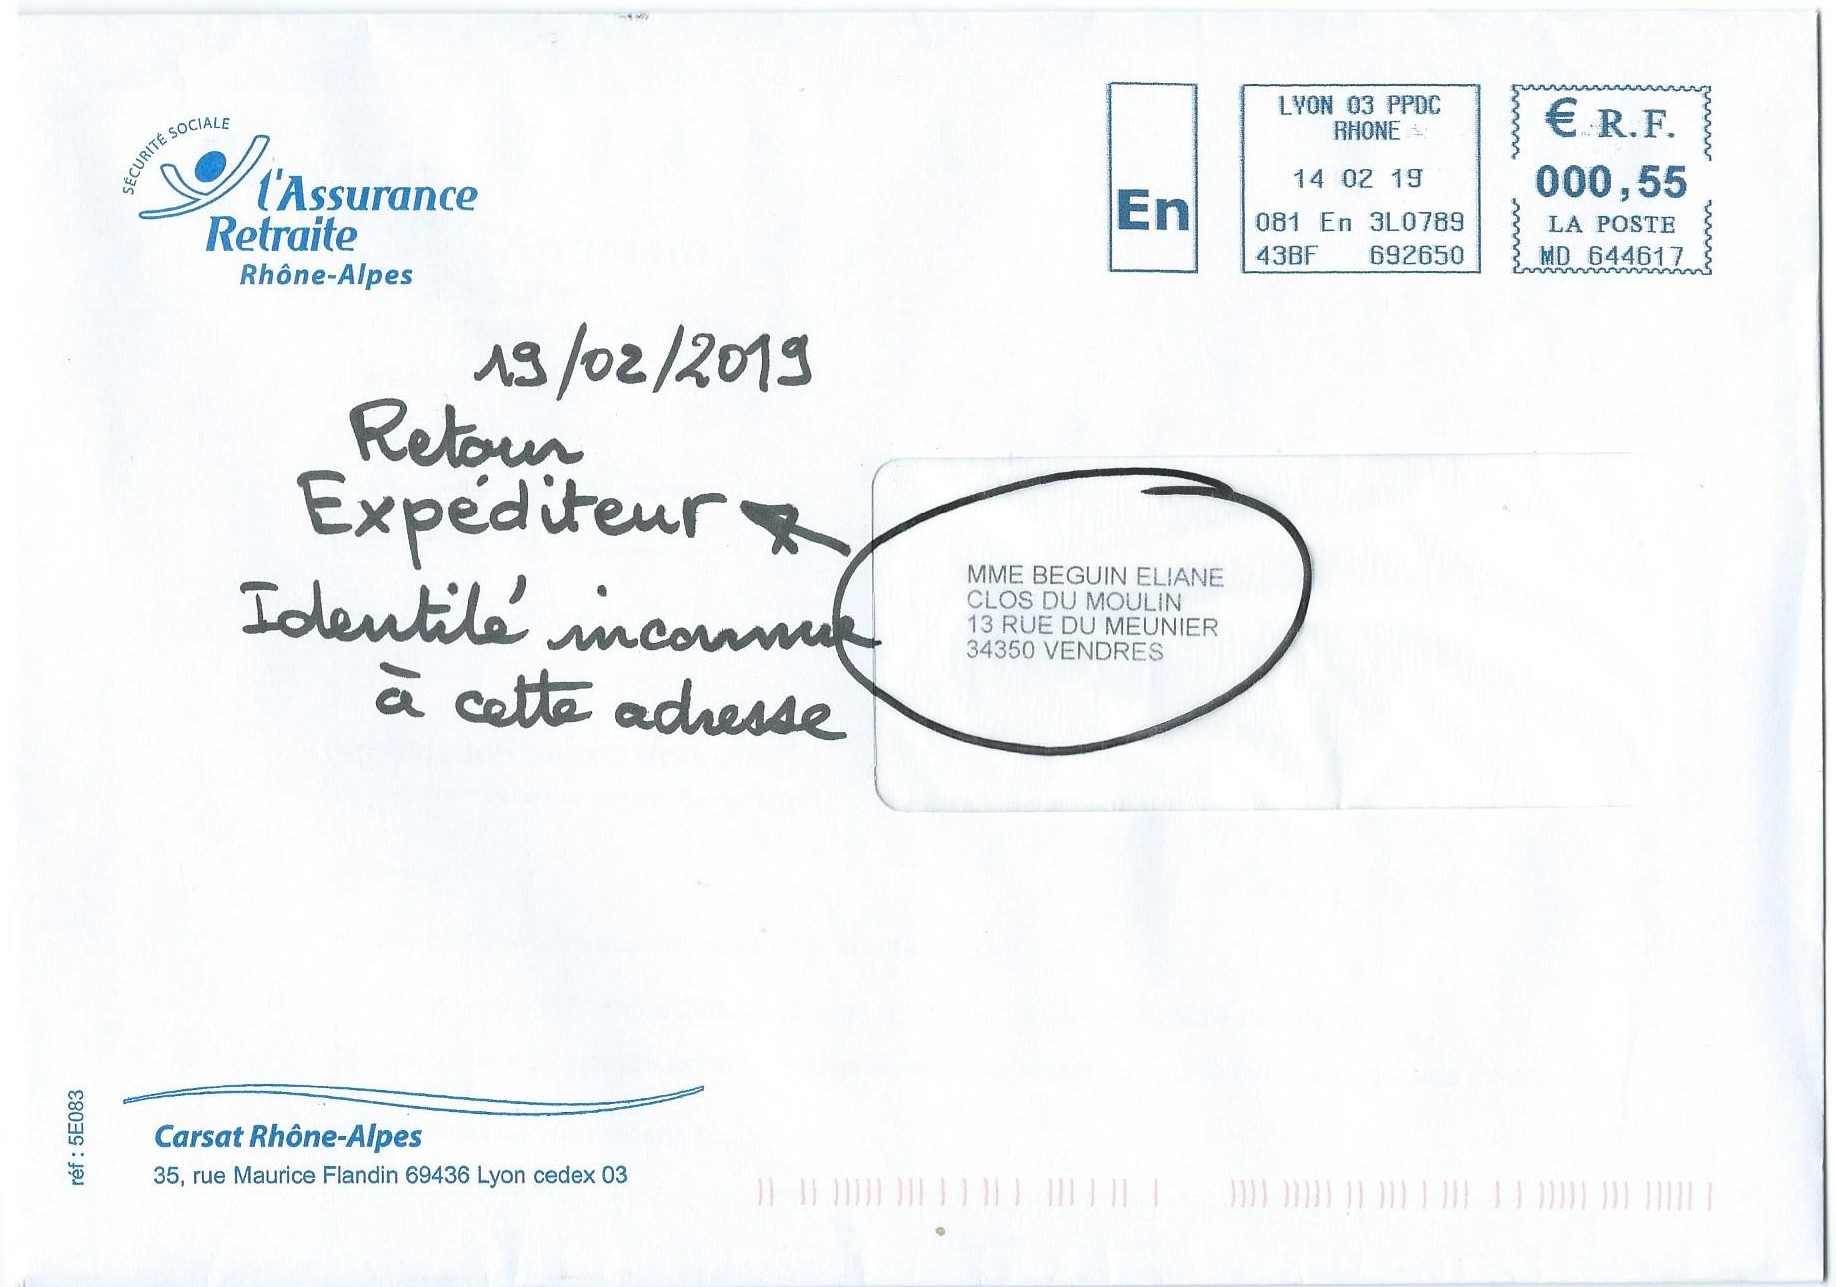 SÉCURITÉ SOCIALE
l'Assurance
Retraite
Rhône-Alpes
En
LYON 03 PPDC
RHONE
14 02 19
081 En 3L0789
43BF 692650
€ R.F.
000,55
LA POSTE
MD 644617
19/02/2019
Retour
Expéditeur
Identité inconnue
à cette adresse
MME BEGUIN ELIANE
CLOS DU MOULIN
13 RUE DU MEUNIER
34350 VENDRES
réf : 5E083
Carsat Rhône-Alpes
35, rue Maurice Flandin 69436 Lyon cedex 03